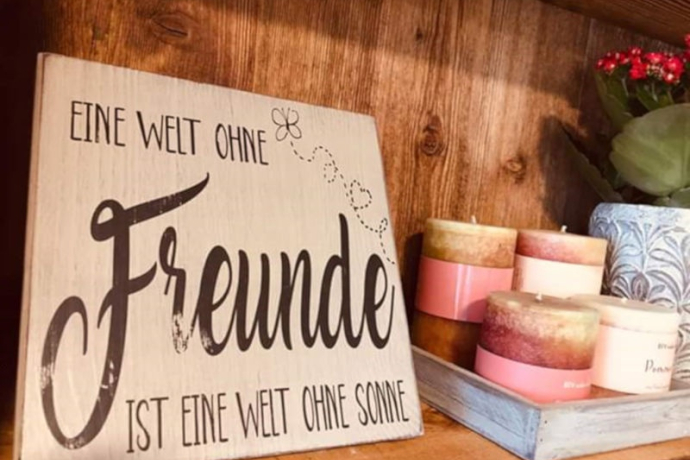 EINE WELT OHNE
Freunde
IST EINE WELT OHNE SONNE